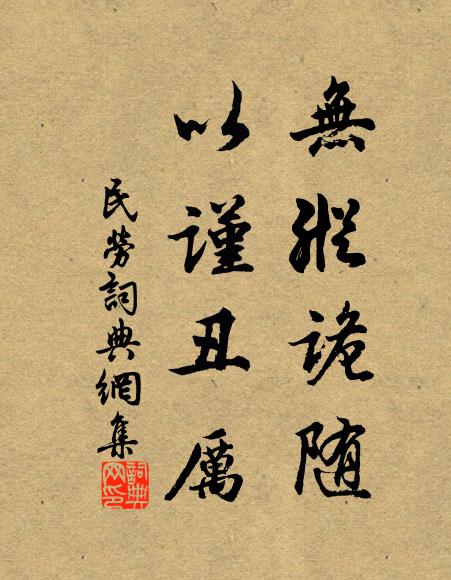 無縱詭随
以謹丑厲
民勞詞典網集
詞典
网印